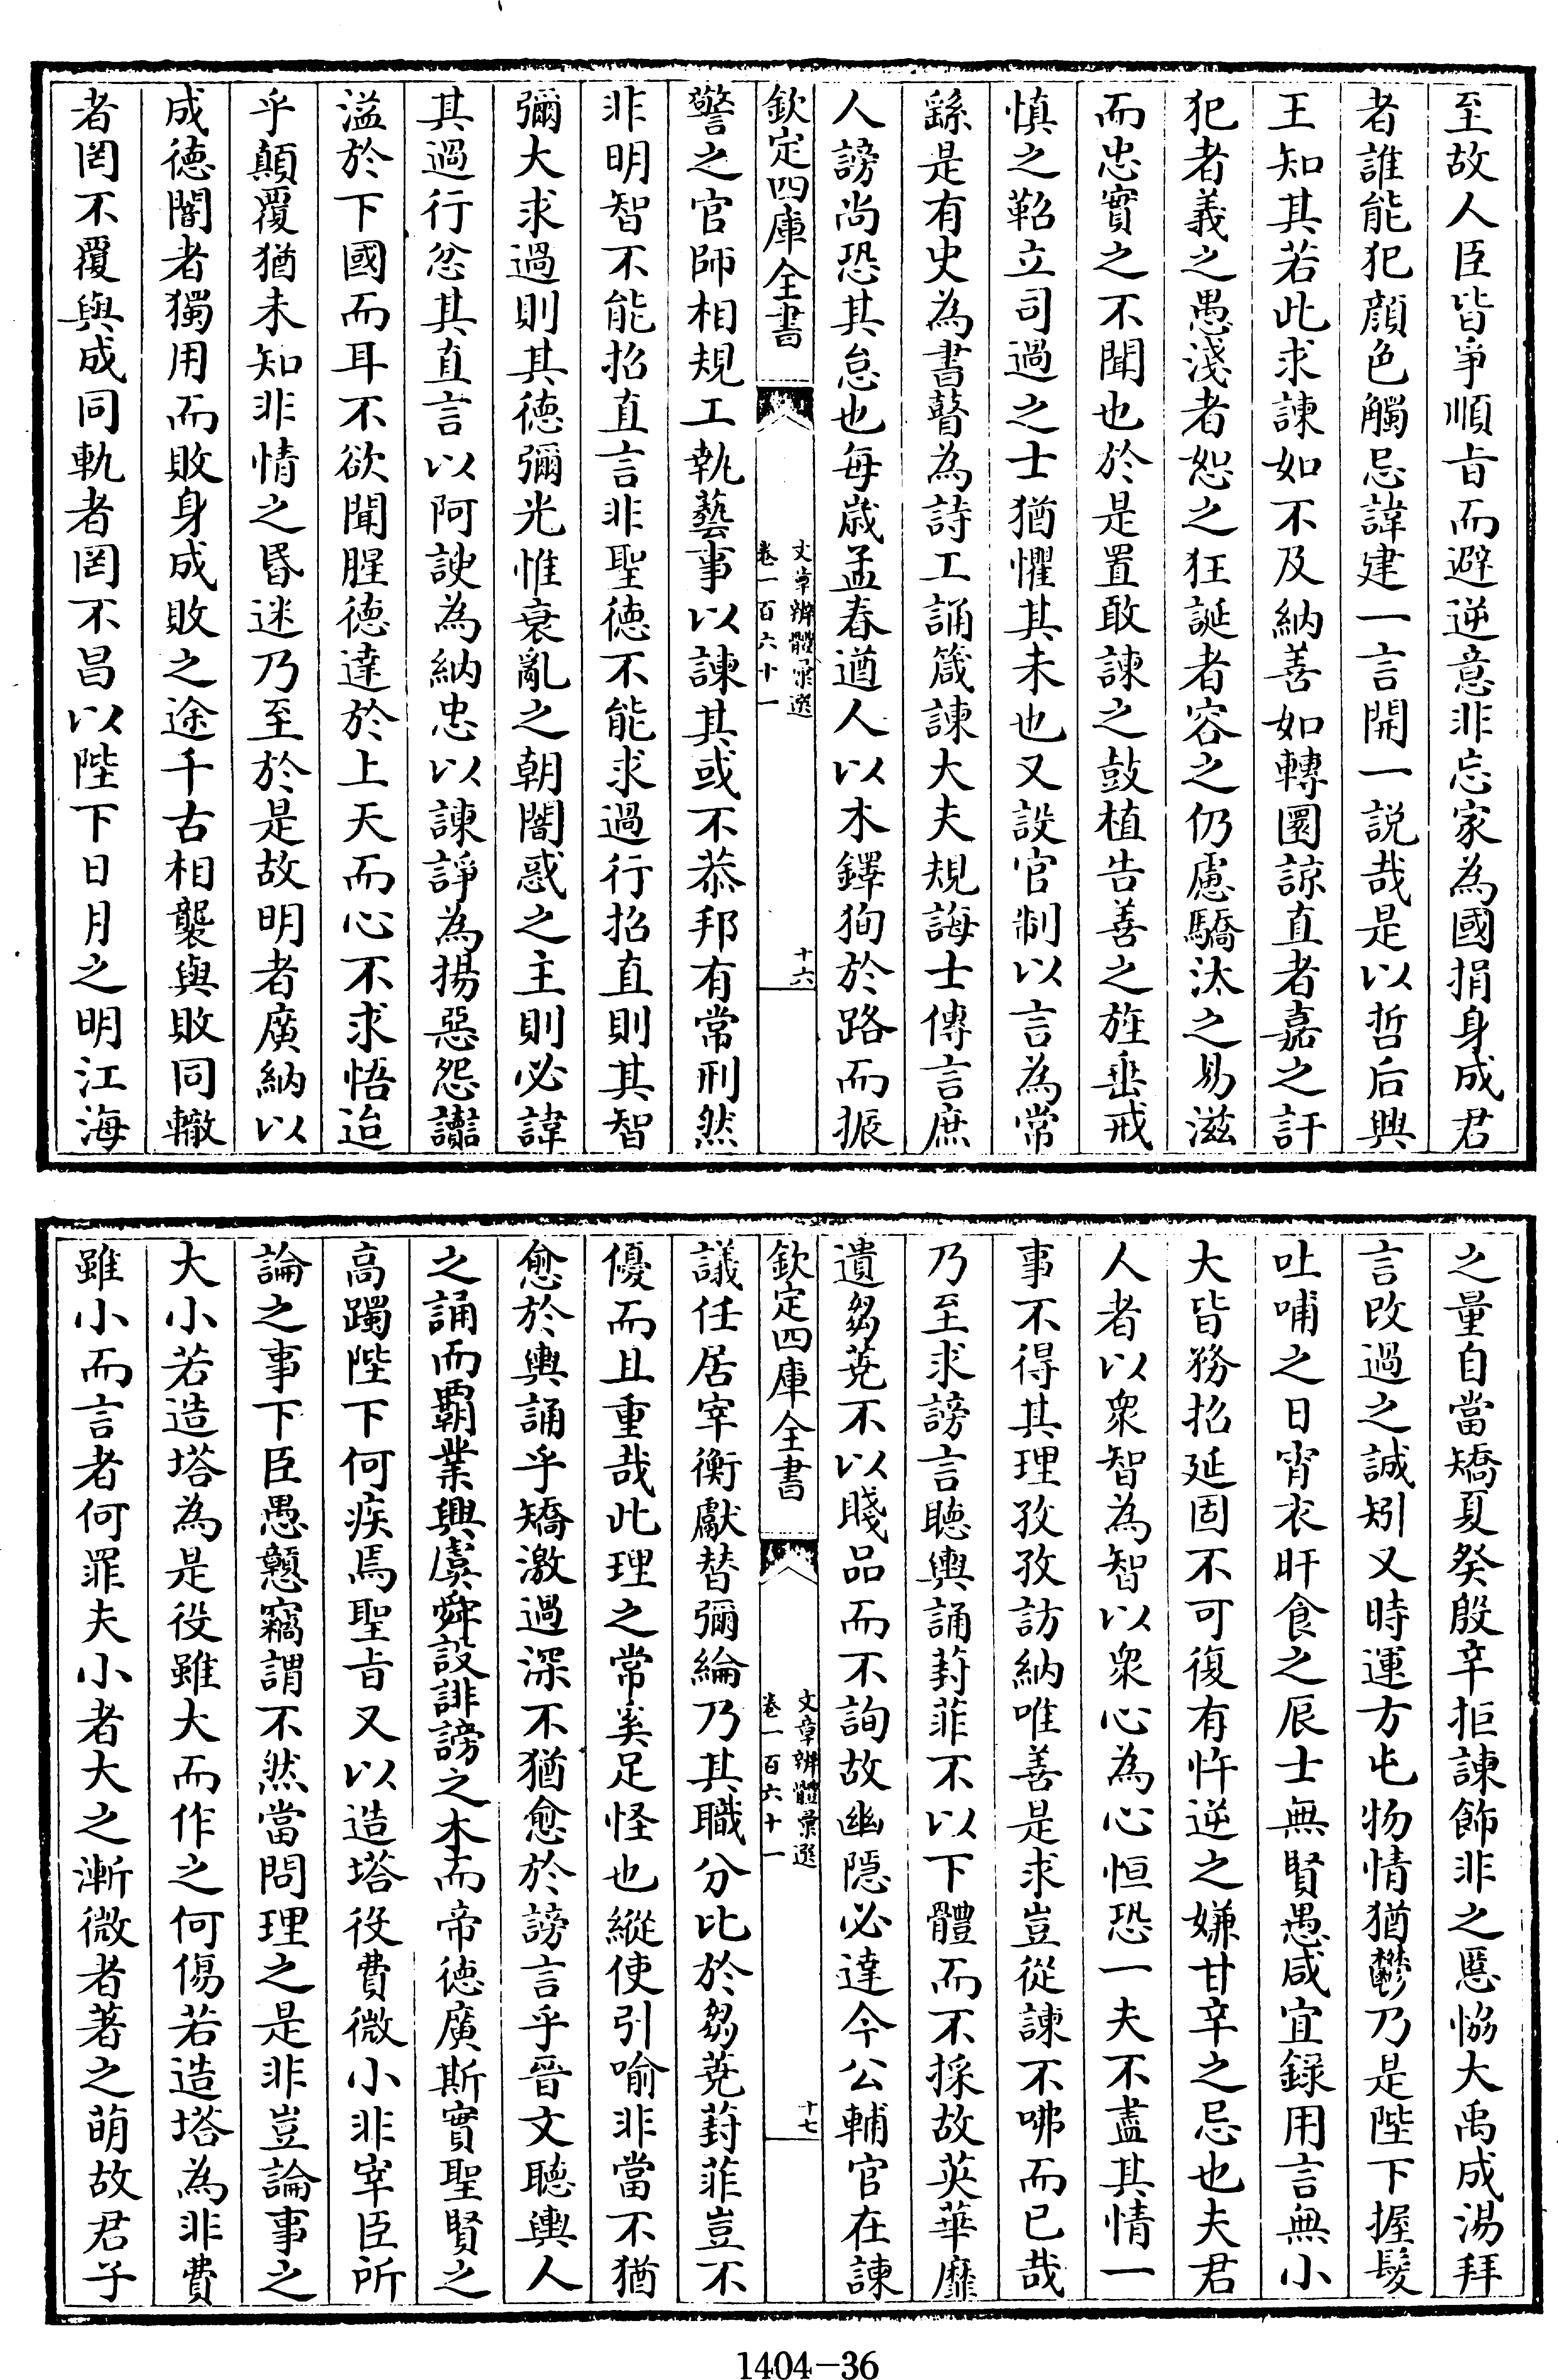 至故人臣皆爭順㫖而避逆意非忘家為國捐身成君
者誰能犯顔色觸忌諱建一言開一説哉是以哲后興
王知其若此求諫如不及納善如轉圜諒直者嘉之訐
犯者義之愚淺者恕之狂誕者容之仍慮驕汰之易滋
而忠實之不聞也於是置敢諫之鼓植告善之旌垂戒
慎之鞀立司過之士猶懼其未也又設官制以言為常
繇是有史為書瞽為詩工誦箴諫大夫規誨士傳言庶
人謗尚恐其怠也每歲孟春遒人以木鐸狥於路而振
欽定四庫全書
文章辨體彙選
卷一百六十一
十六
警之官師相規工執藝事以諫其或不恭邦有常刑然
非明智不能招直言非聖德不能求過行招直則其智
彌大求過則其德彌光惟衰亂之朝闇惑之主則必諱
其過行忿其直言以阿諛為納忠以諫諍為揚惡怨讟
溢於下國而耳不欲聞腥德達於上天而心不求悟迨
乎顛覆猶未知非情之昏迷乃至於是故明者廣納以
成德闇者獨用而敗身成敗之途千古相襲與敗同轍
者罔不覆與成同軌者罔不昌以陛下日月之明江海
之量自當矯夏癸殷辛拒諫飾非之慝恊大禹成湯拜
言改過之誠矧又時運方屯物情猶鬱乃是陛下握髮
吐哺之日宵衣旰食之辰士無賢愚咸宜録用言無小
大皆務招延固不可復有忤逆之嫌甘辛之忌也夫君
人者以衆智為智以衆心為心恒恐一夫不盡其情一
事不得其理孜孜訪納唯善是求豈從諫不咈而已哉
乃至求謗言聽輿誦葑菲不以下體而不採故英華靡
遺芻蕘不以賤品而不詢故幽隱必達今公輔官在諫
欽定四庫全書
文章辨體彙選
卷一百六十一
十七
議任居宰衡獻替彌綸乃其職分比於芻蕘葑菲豈不
優而且重哉此理之常奚足怪也縱使引喻非當不猶
愈於輿誦乎矯激過深不猶愈於謗言乎晉文聽輿人
之誦而覇業興虞舜設誹謗之木而帝德廣斯實聖賢之
高躅陛下何疾焉聖㫖又以造塔役費微小非宰臣所
論之事下臣愚戇竊謂不然當問理之是非豈論事之
大小若造塔為是役雖大而作之何傷若造塔為非費
雖小而言者何罪夫小者大之漸微者著之萌故君子
1404-36